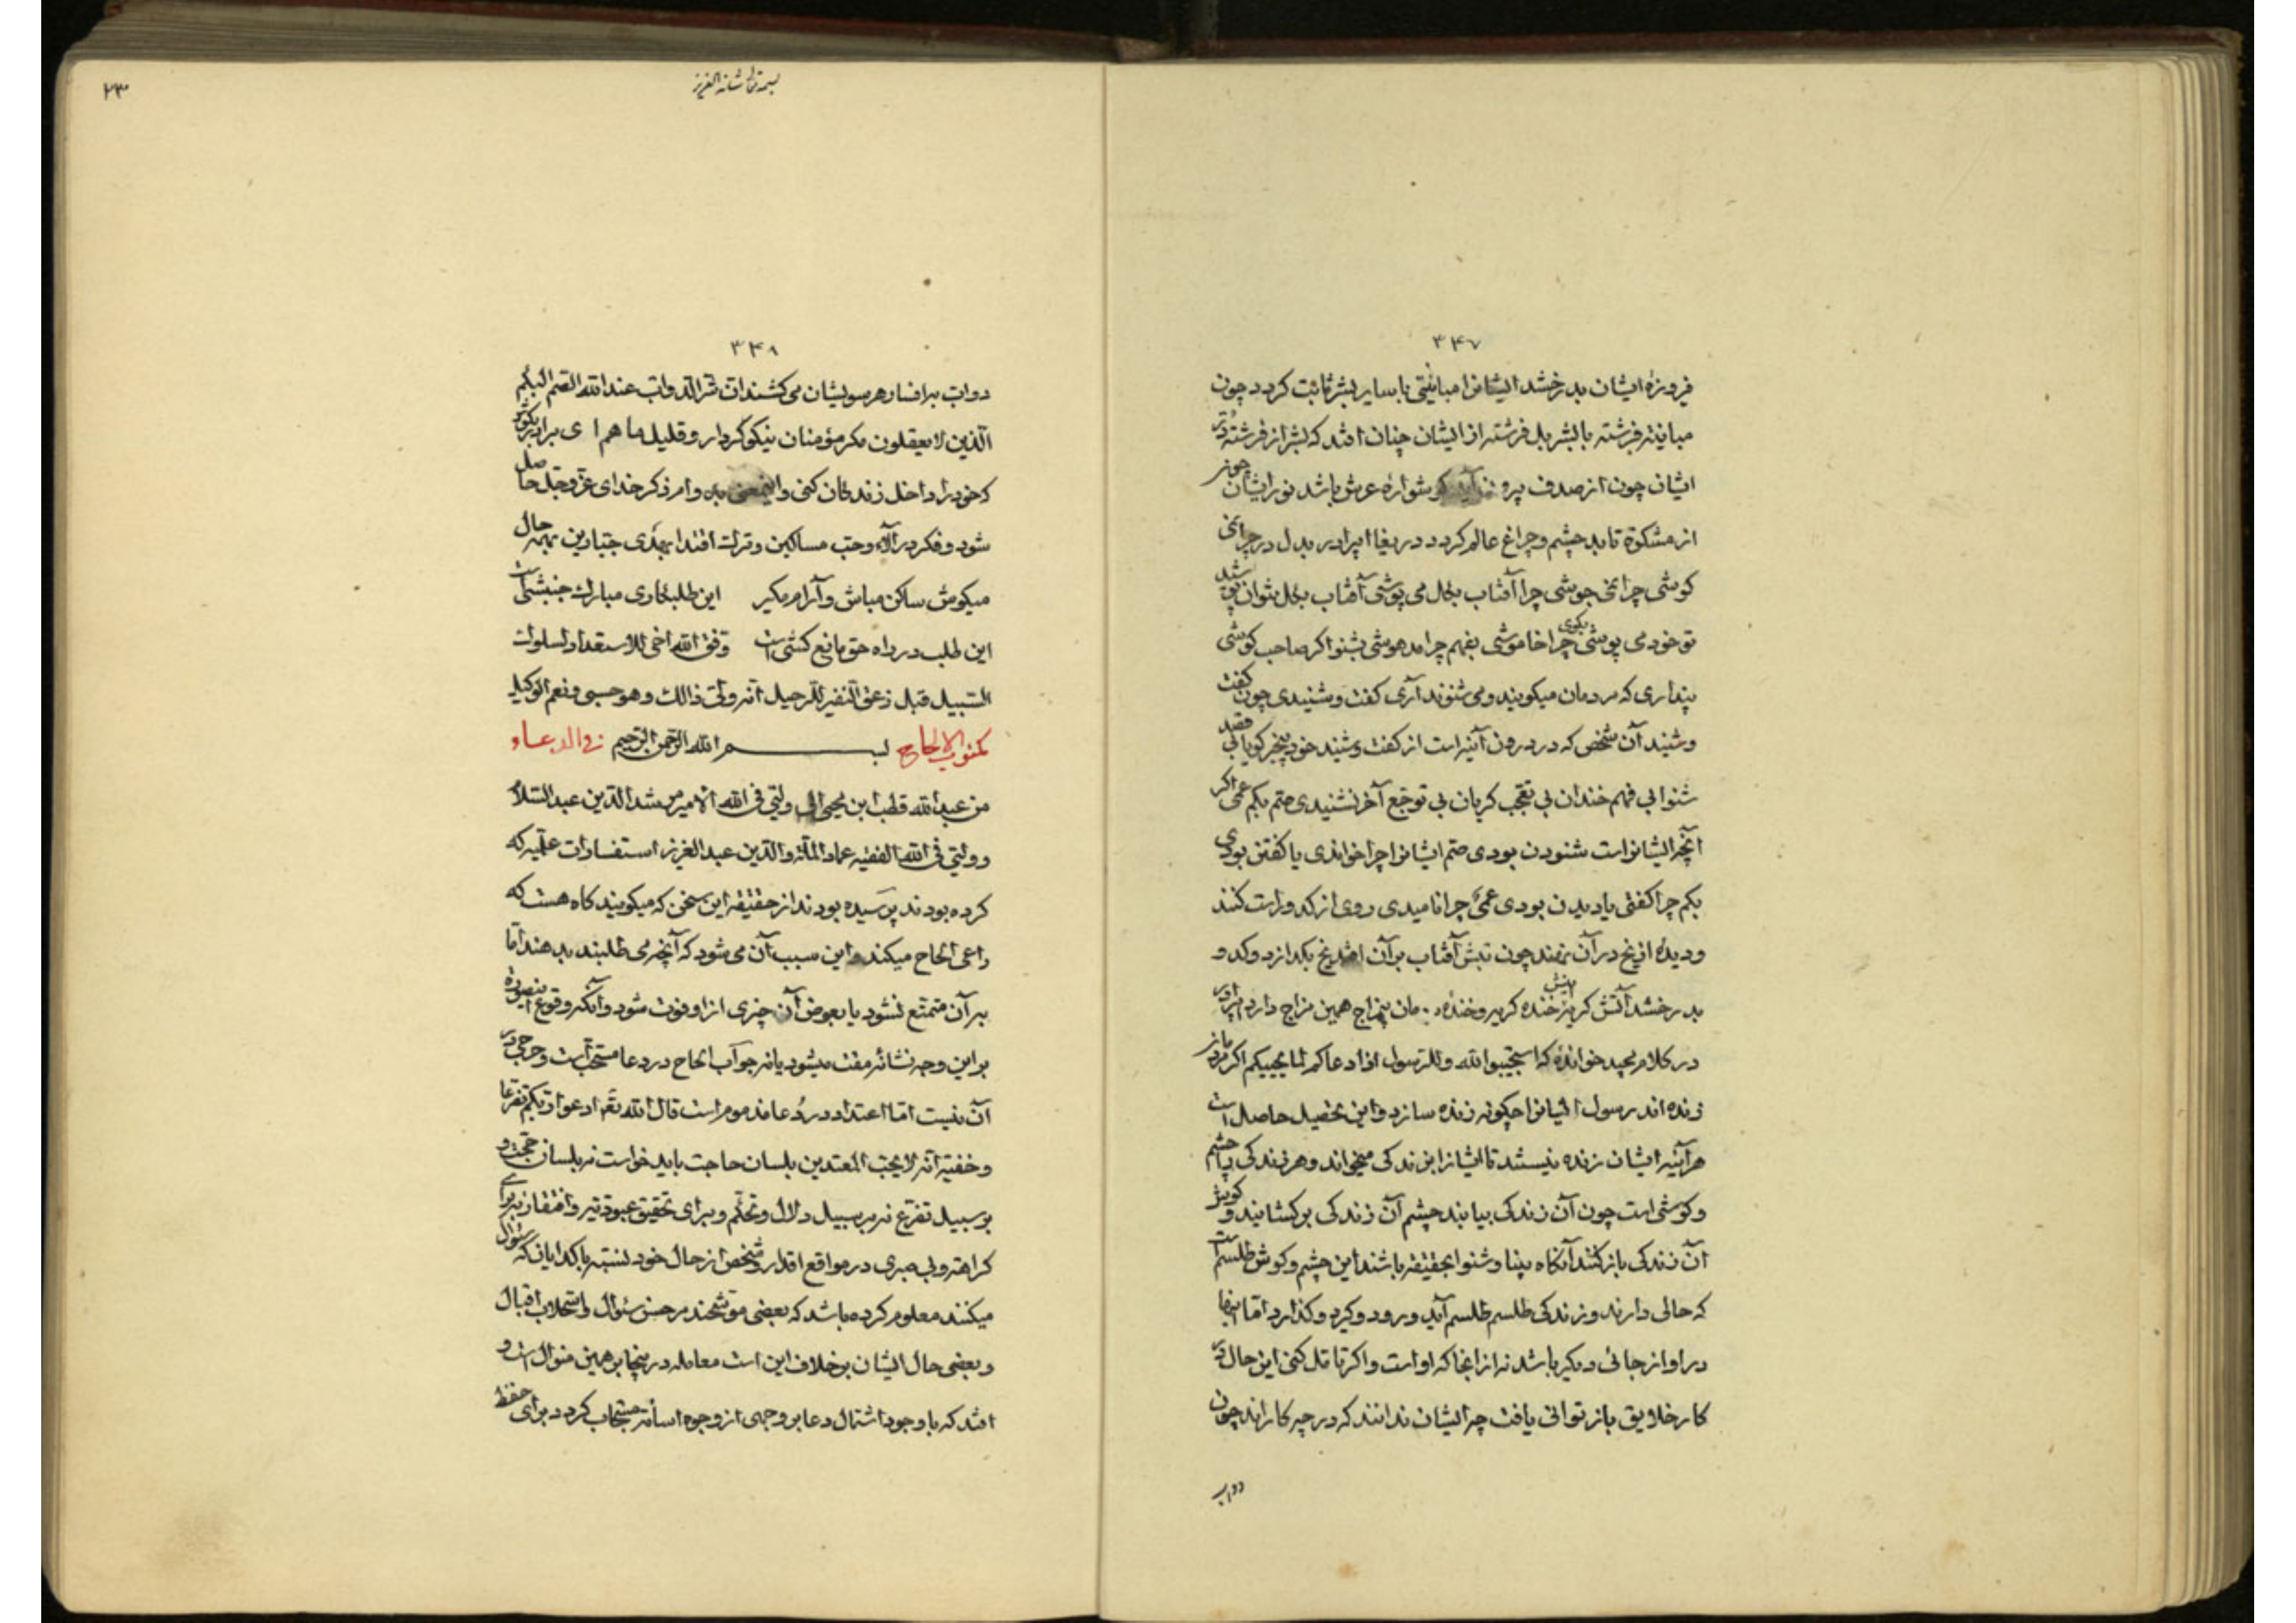 ۳۴۷
فروزهٔ ایشان بدرخشد ایشانرا مباینتی با سایر بشر ثابت کردد چون
مباینة فرشته با بشر بل فرشته از ایشان چنان افتد که بشر از فرشته دُرّ
ایشان چون از صدف بیرون آید کوشوارهٔ عرش باشد نور ایشان چون
از مشکوة تابد چشم و چراغ عالم کردد دریغا ای برادر بدل در چراغی
کوشی چراغی جوشی چرا آفتاب بکل می پوشی آفتاب بکل نتوان پوشید
تو خود می پوشی بکوی چرا خاموشی بفهم چرا مدهوشی بشنو اکر صاحب کوشی
پنداری که مردمان میکویند و می شنوند آری کفت و شنیدی چون کفت
و شنید آن شخص که در درون آینه است از کفت و شنید خود بیخبر کویا بی قصد
شنوا بی فهم خندان بی تعجب کریان بی توجع آخر نشنیدی صم بکم عمی اکر
آنچه ایشانراست شنودن بودی صم ایشانرا چرا خواندی یا کفتن بودی
بکم چرا کفتی یا دیدن بودی عمی چرا نامیدی روی از کدو راست کنند
و دیدهٔ از یخ در آن نهند چون تبش آفتاب بر آن افتد یخ بکدازد و کدو
بدرخشد آتش کریه بینش خنده کریه و خندهٔ مان مزاج همین مزاج دارد برادر
در کلام مجید خواندهٔ که استجیبوا لله وللرسول اذا دعاکم لما یحییکم اکر مردمان
زنده اند رسول ایشانرا چکونه زنده سازد و این تحصیل حاصل است
هر آینه ایشان زنده نیستند تا ایشانرا بزندکی میخواند و هر زندکی را چشم
و کوشی است چون آن زندکی بیابند چشم آن زندکی برکشایند و کوش
آن زندکی باز کنند آنکاه بینا و شنوا بحقیقه باشند این چشم و کوش طلسم است
که حالی دارند و زندکی طلسم طلسم آید و رود و کیرد و کذارد اما اینها
در او از جائی دیکر باشد نه از انجا که اوست و اکر تامل کنی این حال در
کار خلایق باز توانی یافت چه ایشان ندانند که در چه کاراند چون
دواب
بسمه تعالی شانه العزیز
۲۳
۳۴۸
دواب بر افسار هر سویشان می کشند ان شر الدواب عند الله الصم البکم
الذین لا یعقلون مکر مؤمنان نیکو کردار و قلیل ما هم ای برادر بکوش
که خود را داخل زندکان کنی و این معنی بدوام ذکر خدای عز و جل حاصل
شود و فکر در آلاء و حب مساکین و ترک اقتدا بهدی جبارین بهر حال
میکوش ساکن مباش و آرام مکیر این طلبکاری مبارک جنبشی است
این طلب در راه حق مانع کشی است وفق الله اخی للاستعداد لسلوک
السبیل قبل زعق النفیر للرحیل انه ولی ذالک وهو حسبی و نعم الوکیل
مکتوب الالحاح بسم الله الرحمن الرحیم فی الدعاء
من عبد الله قطب ابن محیی الی ولیی فی الله الامیر مرشد الدین عبد السلام
و ولیی فی الله الفقیه عماد الملة والدین عبد العزیز استفسارات علمیه که
کرده بودند پرسیده بودند از حقیقه این سخن که میکویند کاه هست که
داعی الحاح میکند و این سبب آن می شود که آنچه می طلبند بدهند اما
بر آن متمتع نشود یا بعوض آن چیزی از او فوت شود و آنکه وقوع این صورة
بر این وجه نشائه مقت میشود یا نه جواب الحاح در دعا مستحب است و حرجی در
آن نیست اما اعتدا در دعا مذموم است قال الله تعه ادعوا ربکم تضرعا
و خفیة انه لا یحب المعتدین بلسان حاجت باید خواست نه بلسان حجت و
بر سبیل تضرع نه بر سبیل دلال و تحکم و برای تحقیق عبودیة و افتقار نه برای
کراهة و بی صبری در مواقع اقدار و شخص از حال خود نسبة با کدایان که سئوال
میکنند معلوم کرده باشد که بعضی موشحند بر حسن سئوال و استجلاب اقبال
و بعضی حال ایشان بر خلاف این است معامله در اینجا بر همین منوال است و
افتد که با وجود اشتمال دعا بر وجهی از وجوه اسائة مستجاب کردد برای حفظ